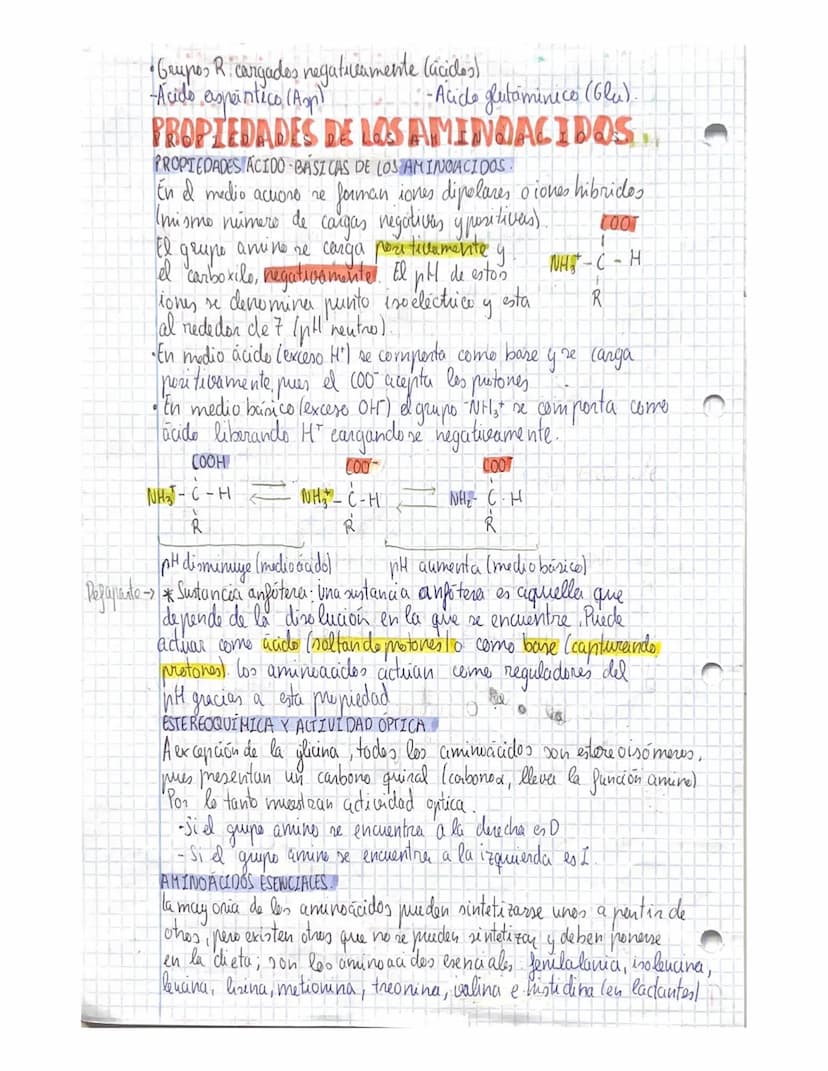 • Grupos R. cargados negativamente (ácidos)
- Ácido aspártico (Asp) - Acido glutáminico (Glu).
PROPIEDADES DE LOS AMINOACIDOS
PROPIEDADES ÁCIDO-BÁSICAS DE LOS AMINOACIDOS.
En el medio acuoso se forman iones dipolares o iones hibridos
(mismo número de cargas negativas y positivas).
El grupo amino se carga positivamente y
el carboxilo, negativamente. El pH de estos
iones se denomina punto isoeléctrico y esta
al rededor de 7 (pH neutro).
COO⁻
NH₃⁺ - C - H
R
• En medio ácido (exceso H⁺) se comporta como base y se carga
positivamente, pues el COO⁻ acepta los protones
• En medio básico (exceso OH⁻) el grupo -NH₃⁺ se comporta como
ácido liberando H⁺ cargandose negativamente.
COOH COO⁻ COO⁻
NH₃⁺ - C - H ⇌ NH₃⁺ - C - H ⇌ NH₂ - C - H
R R R
pH disminuye (medio ácido) pH aumenta (medio básico)
→ * Sustancia anfótera: Una sustancia anfótera es aquella que
depende de la disolución en la que se encuentre. Puede
actuar como ácido (soltando protones) o como base (capturando
protones). Los aminoacidos actúan como reguladores del
pH gracias a esta propiedad
ESTEREOQUÍMICA Y ACTIVIDAD OPTICA
A excepción de la glicina, todos los aminoácidos son estereoisómeros,
pues presentan un carbono quiral (carbono α, lleva la función amino)
Por lo tanto muestran actividad optica.
- Si el grupo amino se encuentra a la derecha es D
- Si el grupo amino se encuentra a la izquierda es L.
AMINOÁCIDOS ESENCIALES.
La mayoria de los aminoácidos pueden sintetizarse unos a partir de
otros, pero existen otros que no se pueden sintetizar y deben ponerse
en la dieta; son los aminoacidos esenciales: fenilalania, isoleucina,
leucina, lisina, metionina, treonina, valina e histidina (en lactantes)